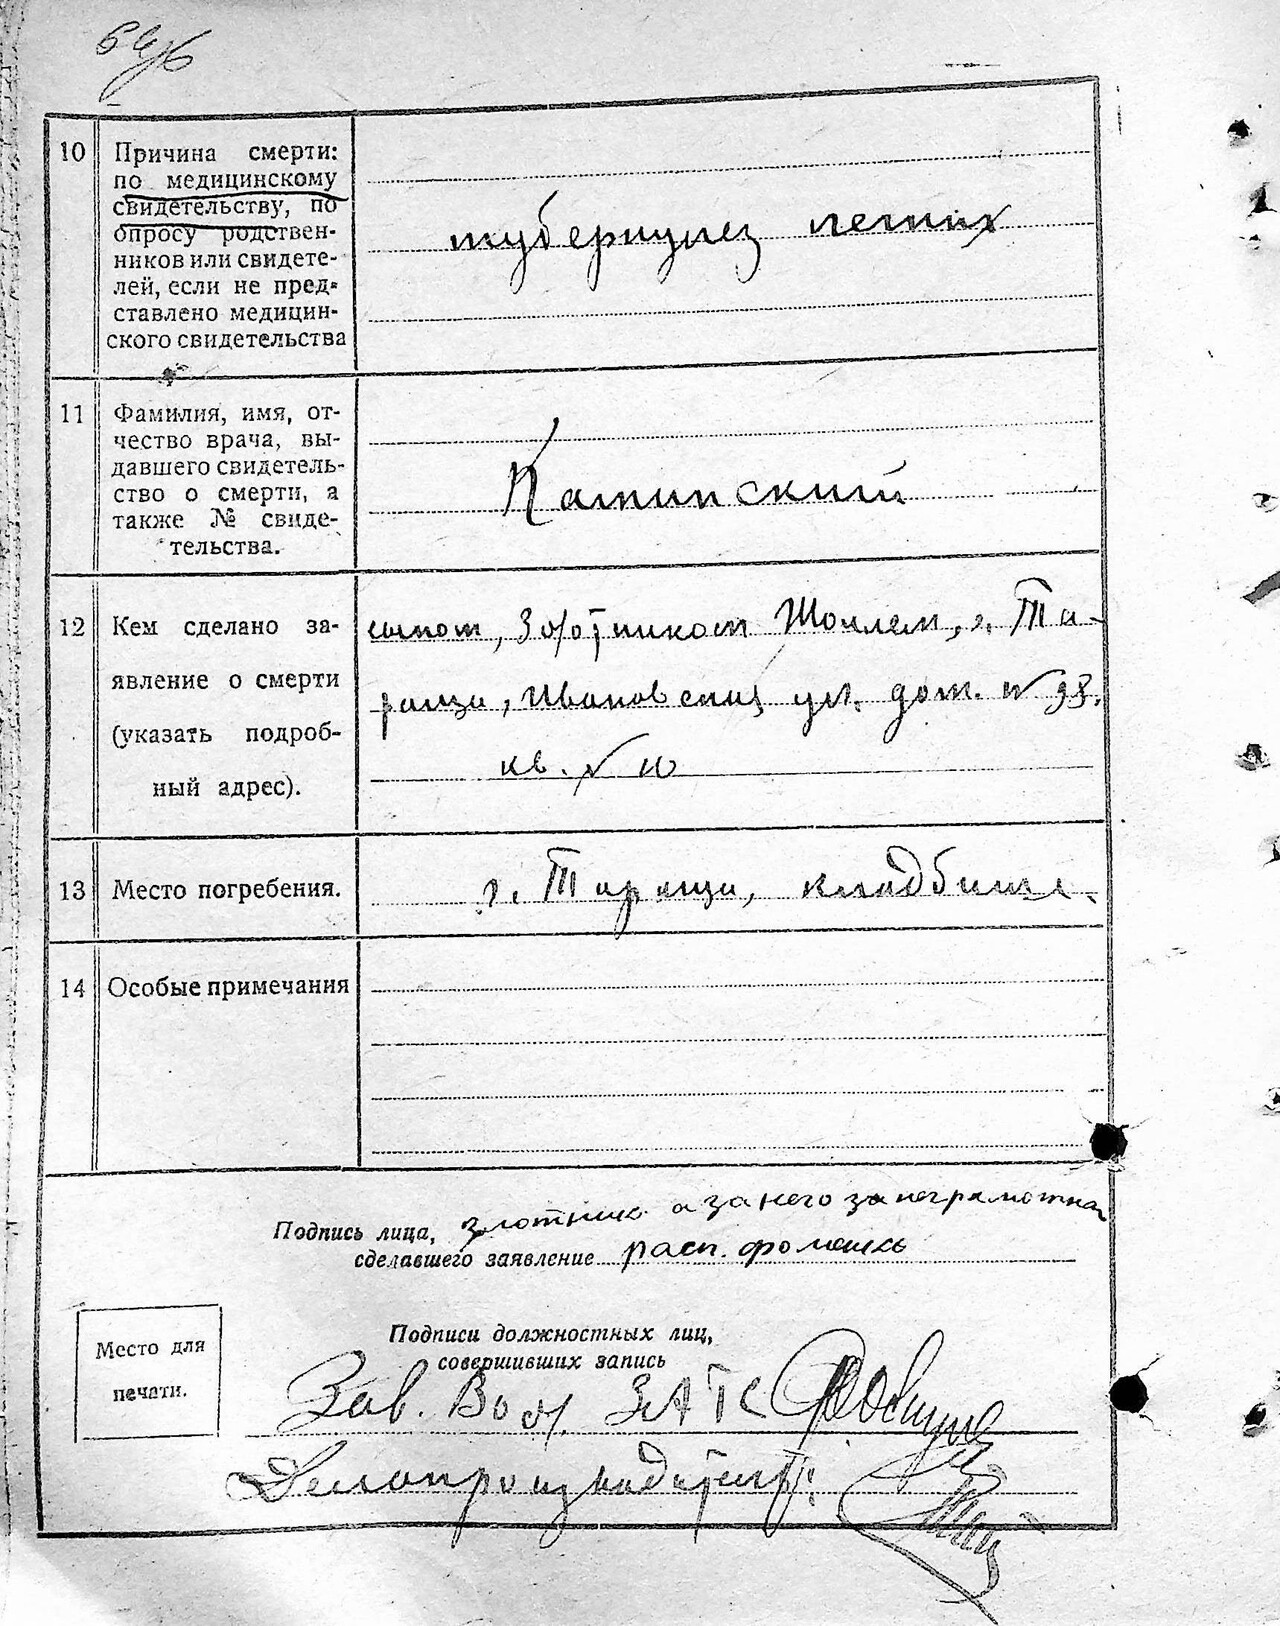 10 Причина смерти:
по медицинскому
свидетельству, по
опросу родствен-
ников или свидете-
лей, если не пред-
ставлено медицин-
ского свидетельства
туберкулез легких
11 Фамилия, имя, от-
чество врача, вы-
давшего свидетель-
ство о смерти, а
также № свиде-
тельства.
Каминский
12 Кем сделано за-
явление о смерти
(указать подроб-
ный адрес).
сыном, Золотником Шоилем, г. Та-
раща, Ивановская ул. дом. № 93.
кв. № 10
13 Место погребения.
г. Тараща, кладбище.
14 Особые примечания
Подпись лица, злотник а за него за неграмотна
сделавшего заявление расп.
Место для
печати.
Подписи должностных лиц,
совершивших запись
Зав. Вол. ЗАГС
Делопроизводитель: